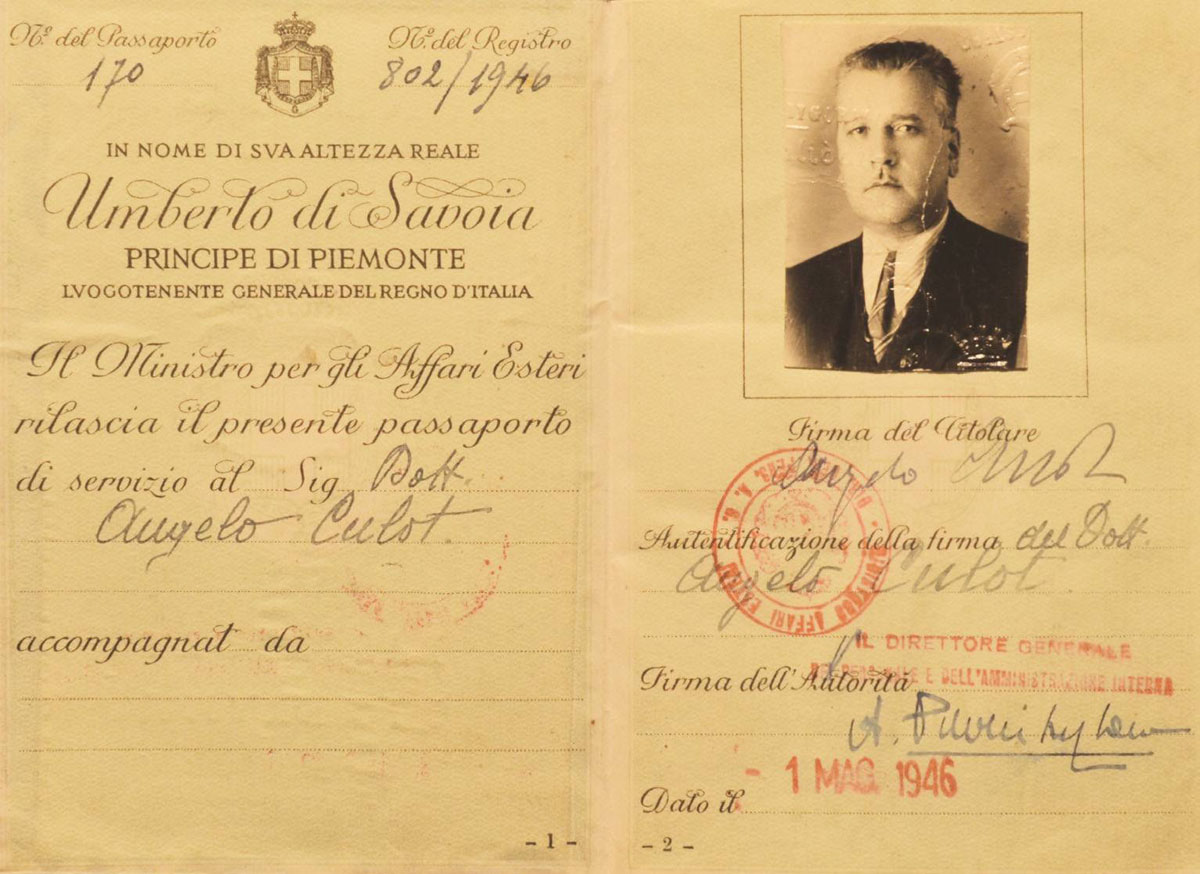 Nº. del Passaporto
170
Nº. del Registro
802/1946
IN NOME DI SVA ALTEZZA REALE
Umberto di Savoia
PRINCIPE DI PIEMONTE
LVOGOTENENTE GENERALE DEL REGNO D'ITALIA
Il Ministro per gli Affari Esteri
rilascia il presente passaporto
di servizio al Sig Dott.
Angelo Culot.
accompagnat da
- 1 -
Firma del Titolare
Angelo Culot
Autentificazione della firma del Dott.
Angelo Culot
AFFARI ESTERI
IL DIRETTORE GENERALE
DEL PERSONALE E DELL'AMMINISTRAZIONE INTERNA
Firma dell'Autorità
A.
- 1 MAG. 1946
Dato il
- 2 -